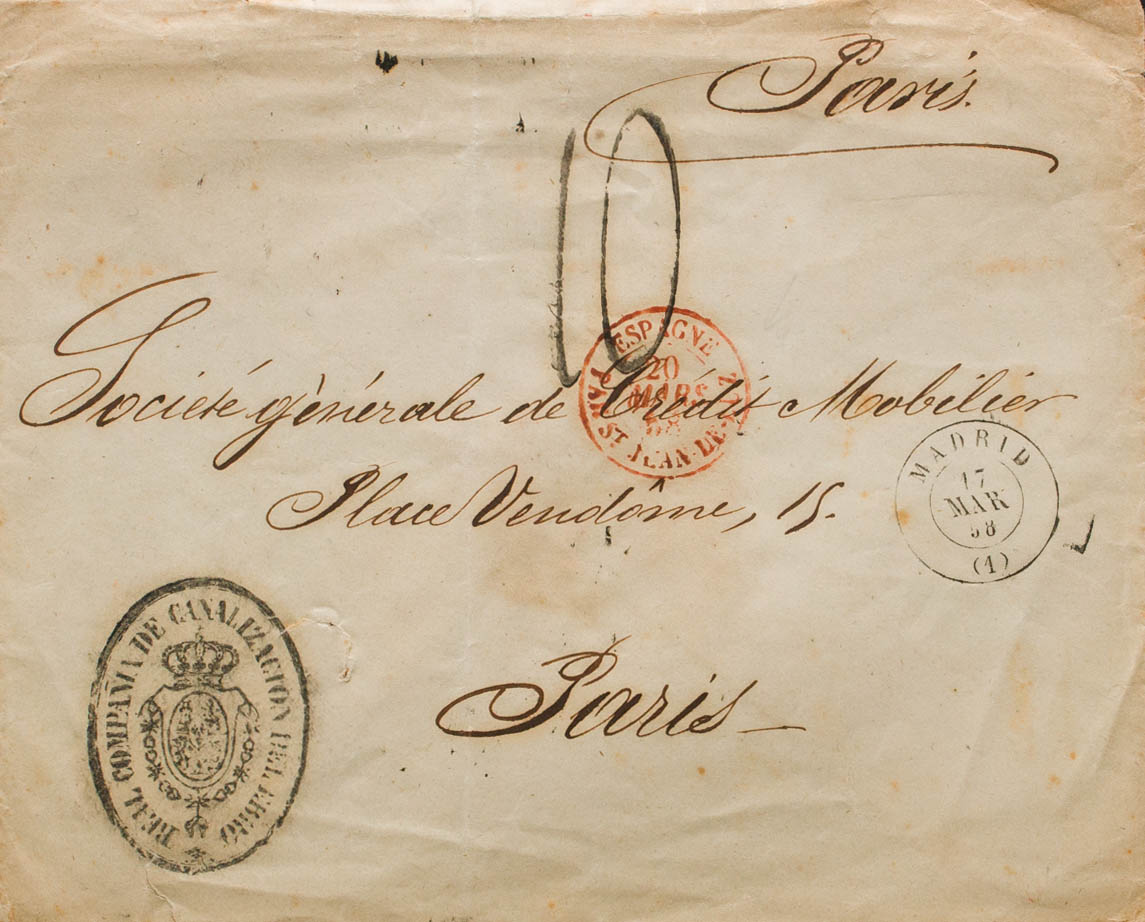 Paris.
10
Société générale de Crédit Mobilier
Place Vendôme, 15.
Paris
ESPAGNE
20
MARS
58
ST JEAN-DE-LUZ
MADRID
17
MAR
58
(1)
REAL COMPAÑIA DE CANALIZACION DEL EBRO